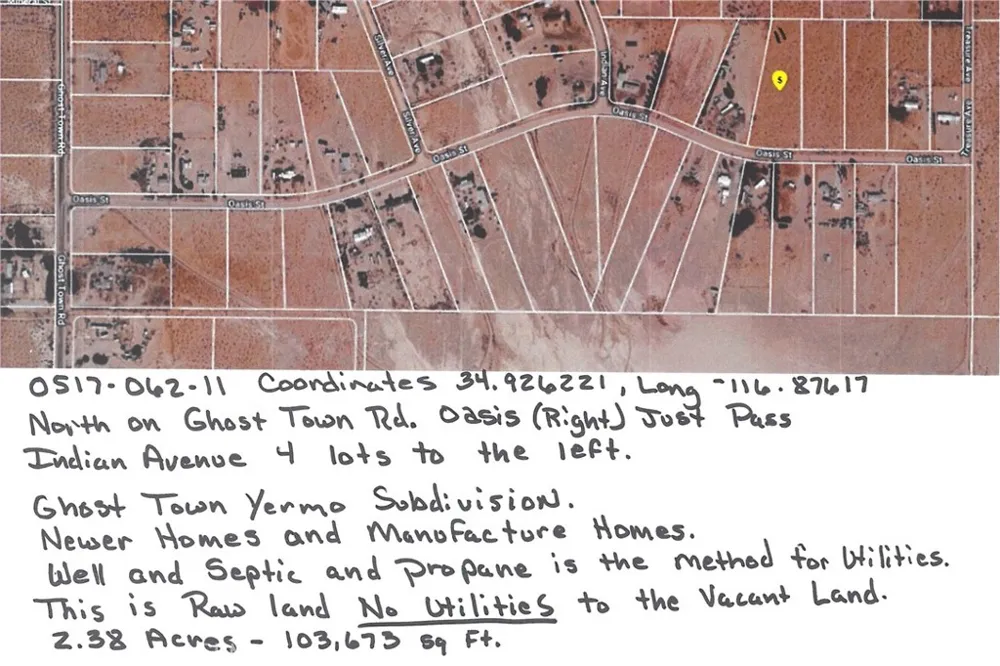 Mineral St
Ghost Town Rd
Silver Ave
Silver Ave
Indian Ave
Treasure Ave
Treasure Ave
Oasis St
Oasis St
Oasis St
Oasis St
Oasis St
Oasis St
Ghost Town Rd
S
0517-062-11 Coordinates 34.926221, Long -116.87617
North on Ghost Town Rd. Oasis (Right) Just Pass
Indian Avenue 4 lots to the left.
Ghost Town Yermo Subdivision.
Newer Homes and Manufacture Homes.
Well and Septic and Propane is the method for Utilities.
This is Raw land No Utilities to the Vacant Land.
2.38 Acres - 103,673 sq Ft.